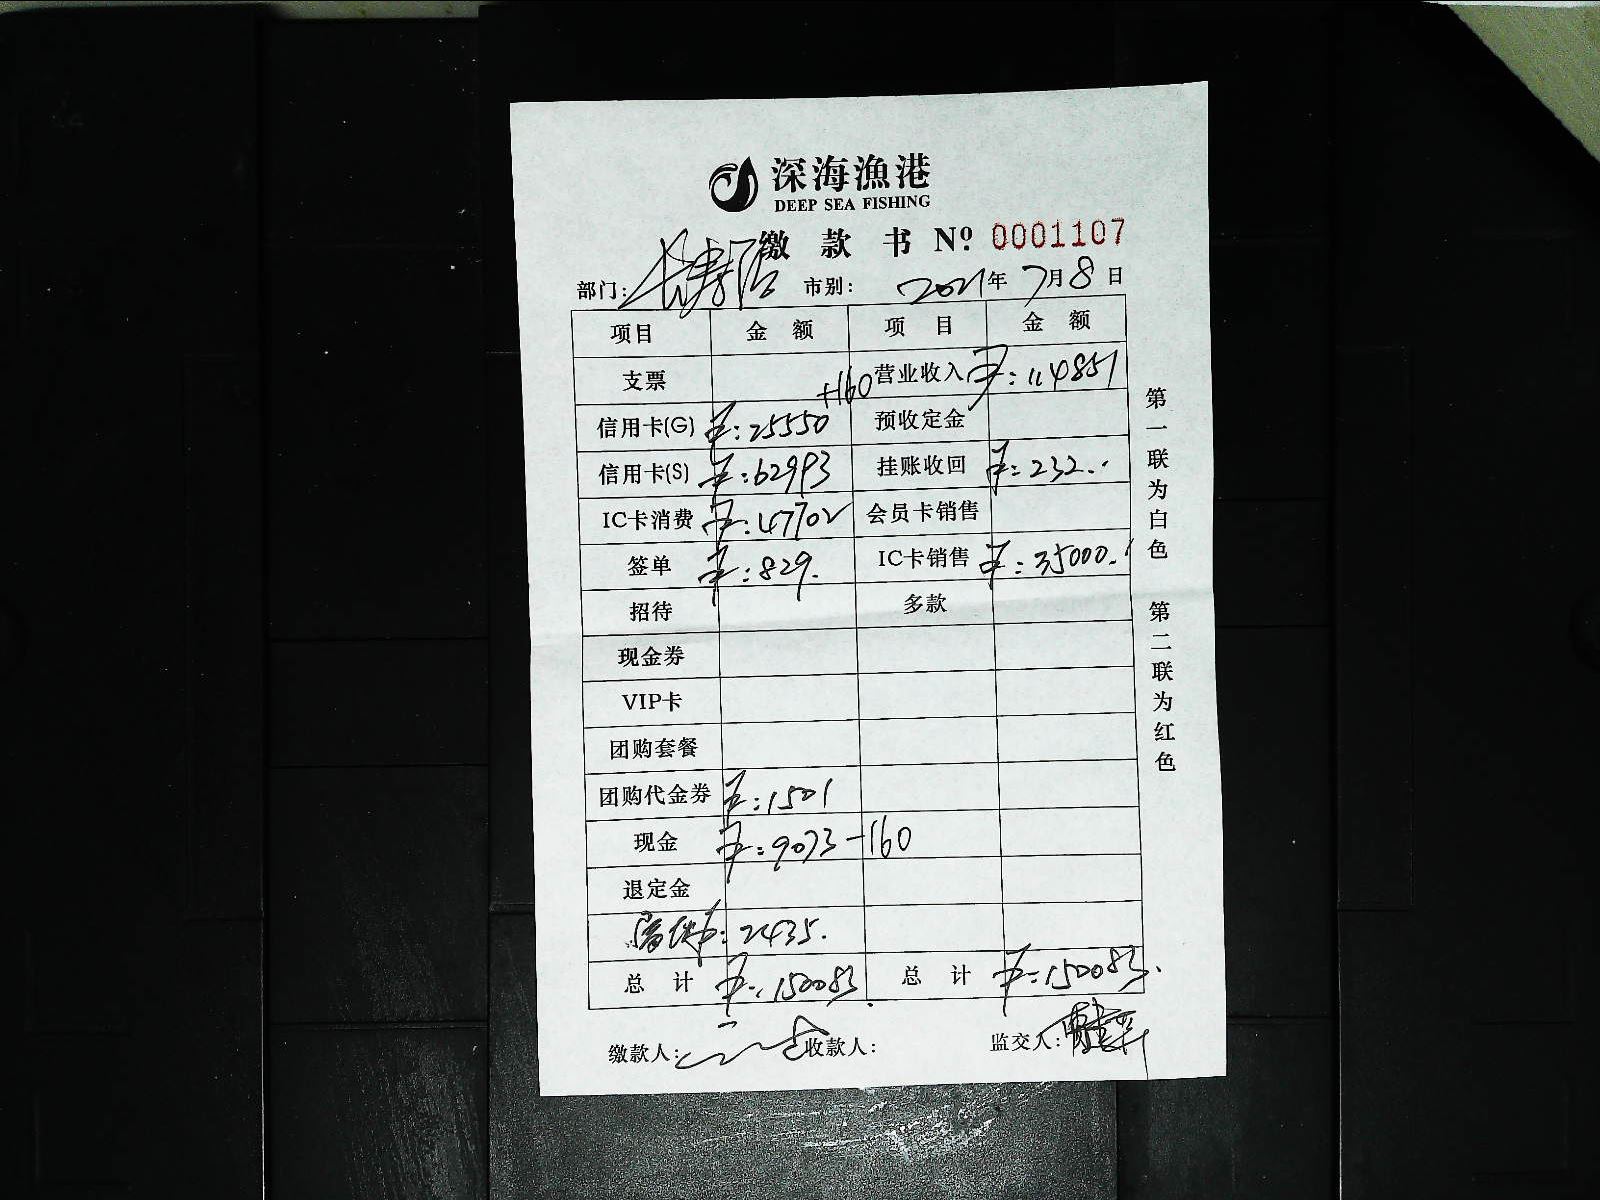 深海漁港
DEEP SEA FISHING
缴款书 Nº 0001107
部门: 长寿店 市别: 2021年7月8日
项目 金额 项目 金额
支票 营业收入 ¥:114851
信用卡(G) ¥:25550 +160 预收定金
信用卡(S) ¥:62993 挂账收回 ¥:232.
IC卡消费 ¥:47702 会员卡销售
签单 ¥:829. IC卡销售 ¥:35000.
招待 多款
现金券
VIP卡
团购套餐
团购代金券 ¥:1501
现金 ¥:9073-160
退定金
: 2435.
总计 ¥:150083 总计 ¥:150083.
缴款人: 收款人: 监交人:
第一联为白色 第二联为红色